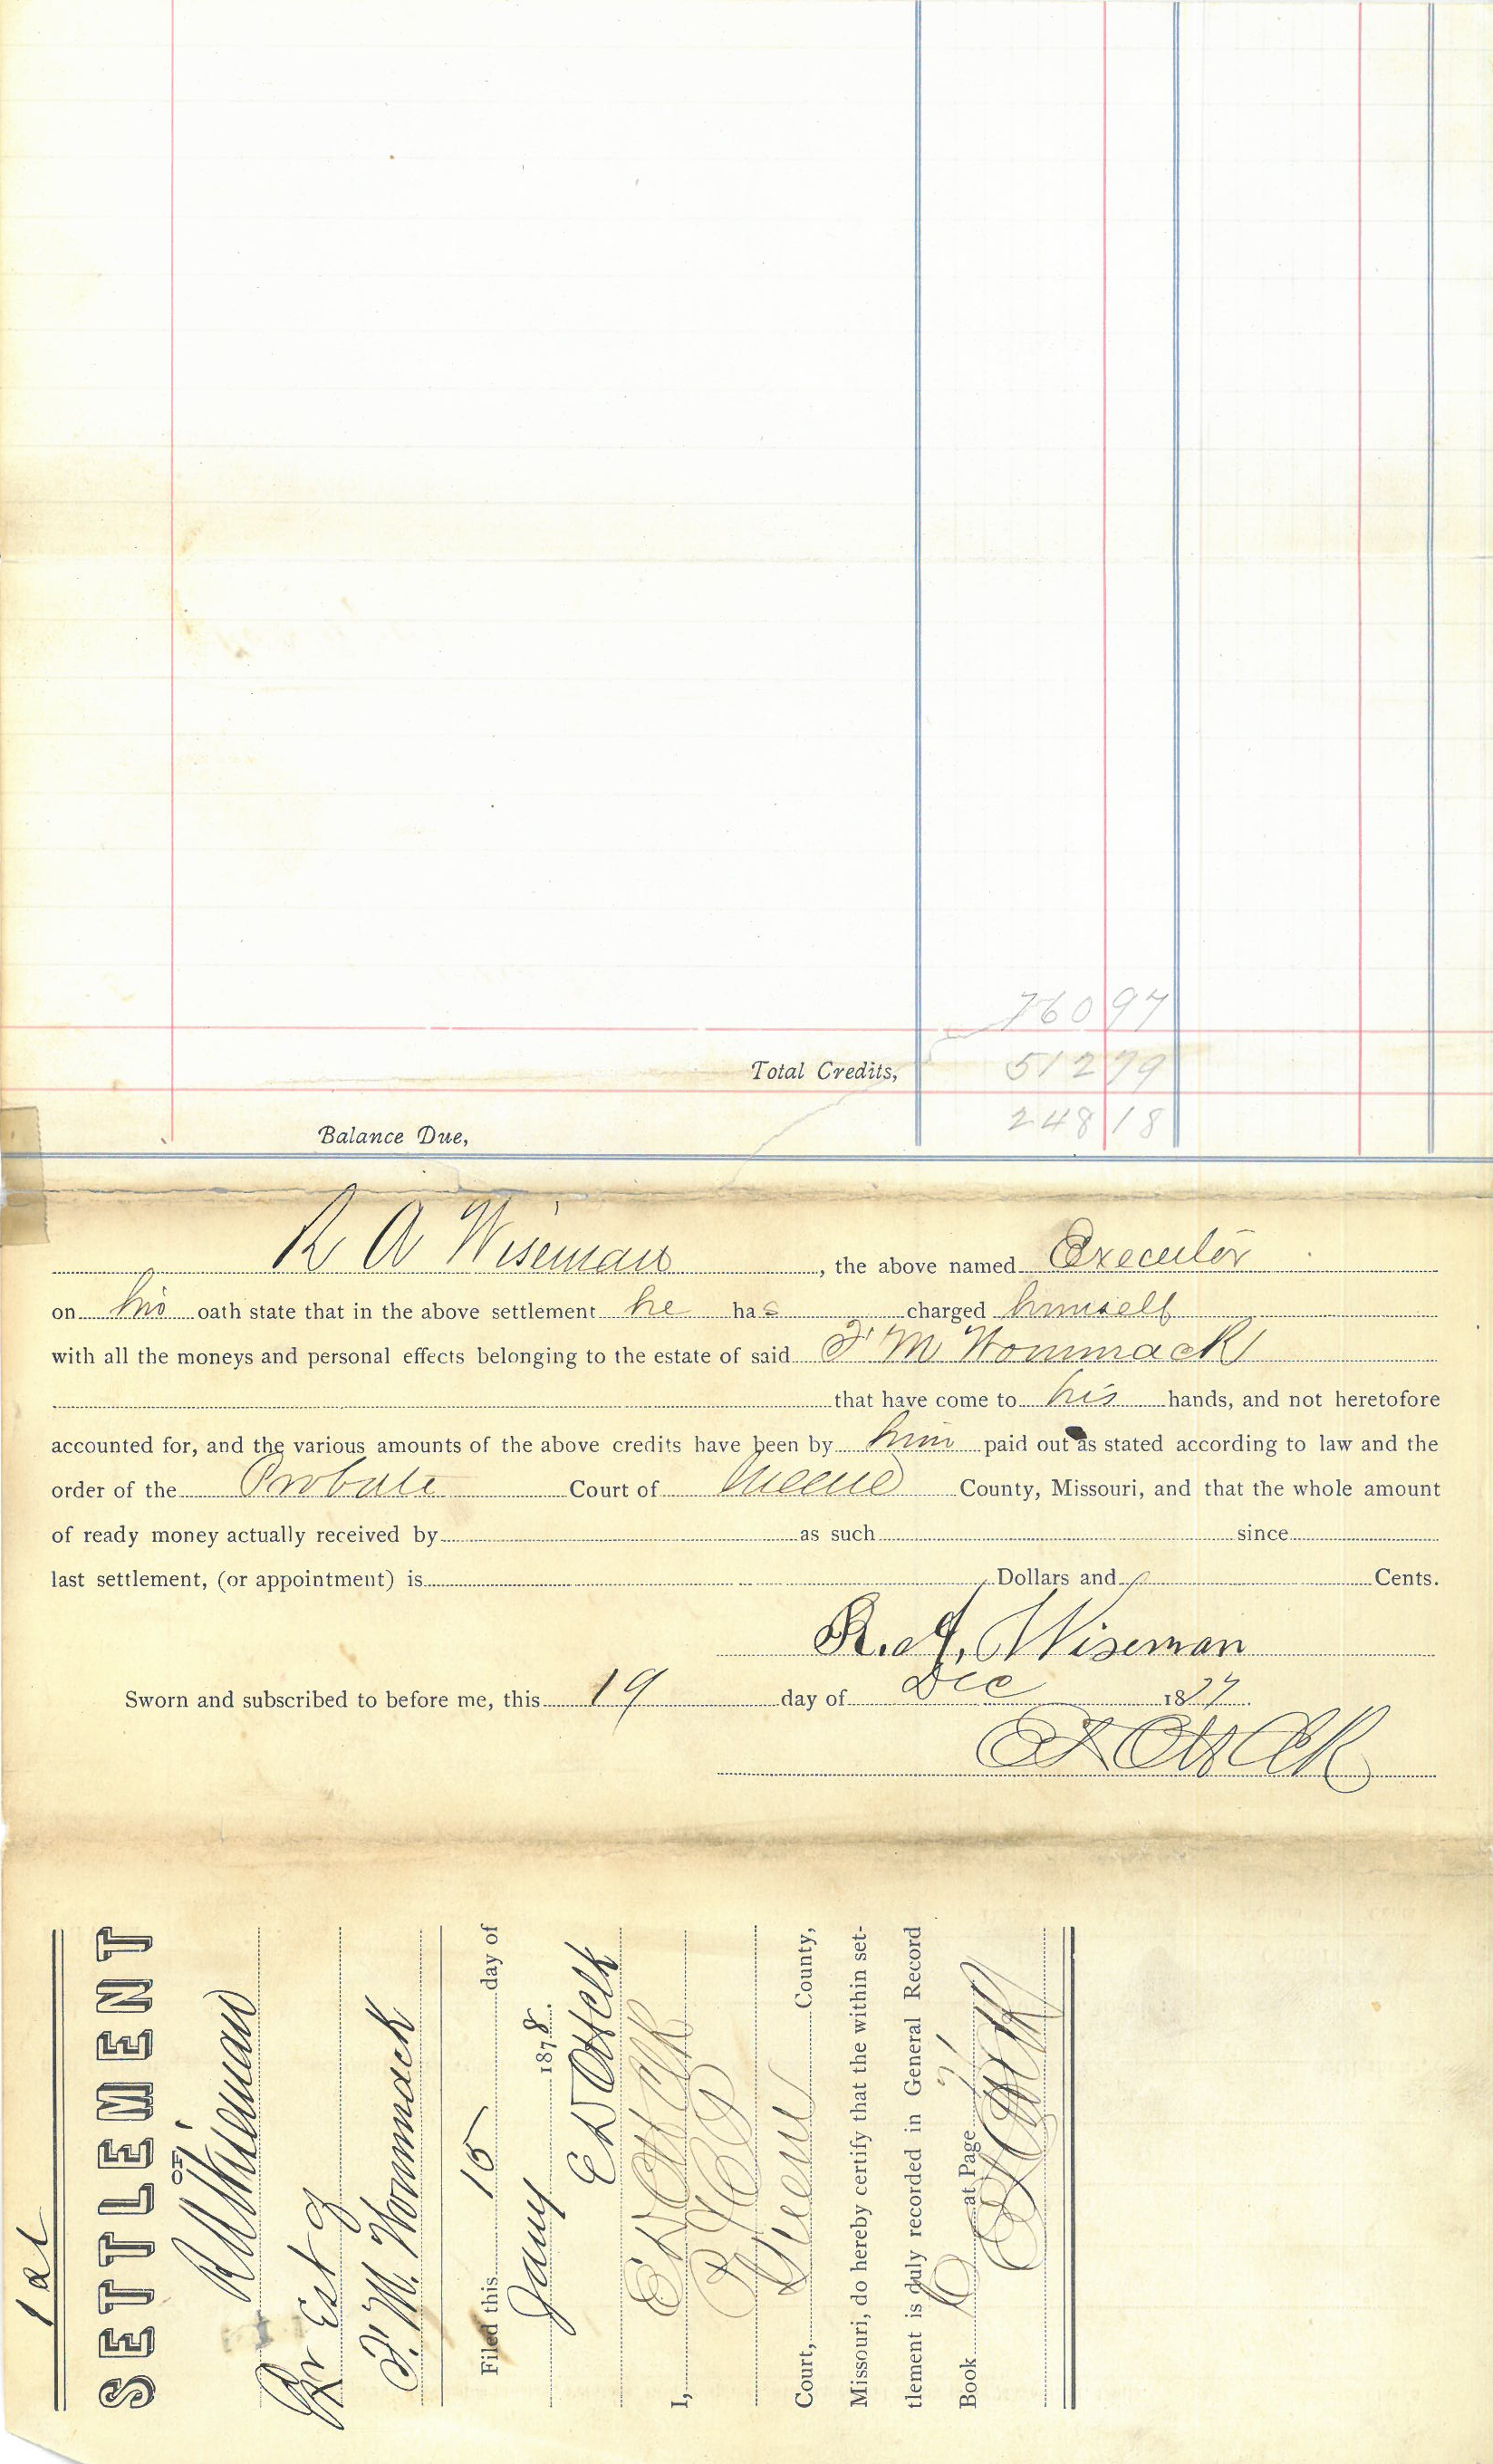 760 97
Total Credits, 512 79
Balance Due, 248 18
R A Wiseman, the above named Executor
on his oath state that in the above settlement he has charged himself
with all the moneys and personal effects belonging to the estate of said F M Wommack
that have come to his hands, and not heretofore
accounted for, and the various amounts of the above credits have been by him paid out as stated according to law and the
order of the Probate Court of Greene County, Missouri, and that the whole amount
of ready money actually received by as such since
last settlement, (or appointment) is Dollars and Cents.
R. A. Wiseman
Sworn and subscribed to before me, this 19 day of Dec 1877.
1st
SETTLEMENT
OF
R A Wiseman
Exr Est of
F. M. Wommack
Filed this 15 day of
Jany 1878.
I,
Court, Greene County,
Missouri, do hereby certify that the within set-
tlement is duly recorded in General Record
Book D at Page